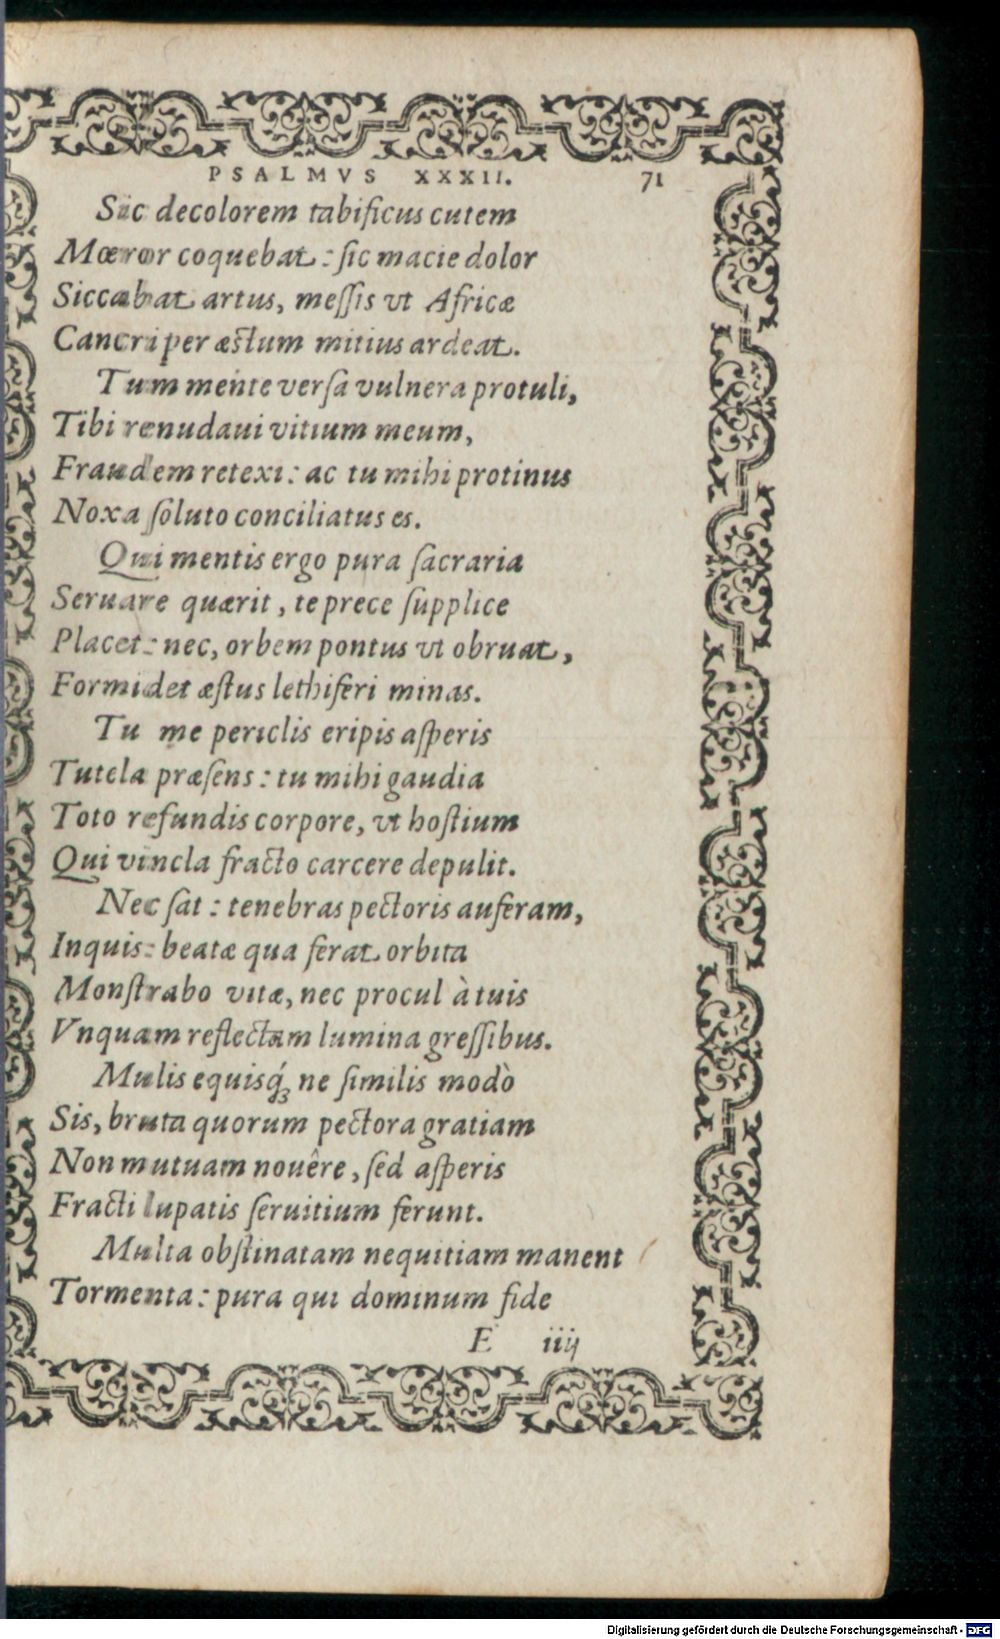 PSALMVS XXXII. 71
Sic decolorem tabificus cutem
Mœror coquebat: ſic macie dolor
Siccabat artus, meſſis vt Africæ
Cancri per æſtum mitius ardeat.
Tum mente verſa vulnera protuli,
Tibi renudaui vitium meum,
Fraudem retexi: ac tu mihi protinus
Noxa ſoluto conciliatus es.
Qui mentis ergo pura ſacraria
Seruare quærit, te prece ſupplice
Placet: nec, orbem pontus vt obruat,
Formidet æſtus lethiferi minas.
Tu me periclis eripis aſperis
Tutela præſens: tu mihi gaudia
Toto refundis corpore, vt hoſtium
Qui vincla fracto carcere depulit.
Nec ſat: tenebras pectoris auferam,
Inquis: beatæ qua ferat orbita
Monſtrabo vitæ, nec procul à tuis
Vnquam reflectam lumina greſſibus.
Mulis equisq́ꝫ ne ſimilis modò
Sis, bruta quorum pectora gratiam
Non mutuam nouêre, ſed aſperis
Fracti lupatis ſeruitium ferunt.
Multa obſtinatam nequitiam manent
Tormenta: pura qui dominum fide
E iiij
Digitalisierung gefördert durch die Deutsche Forschungsgemeinschaft - DFG